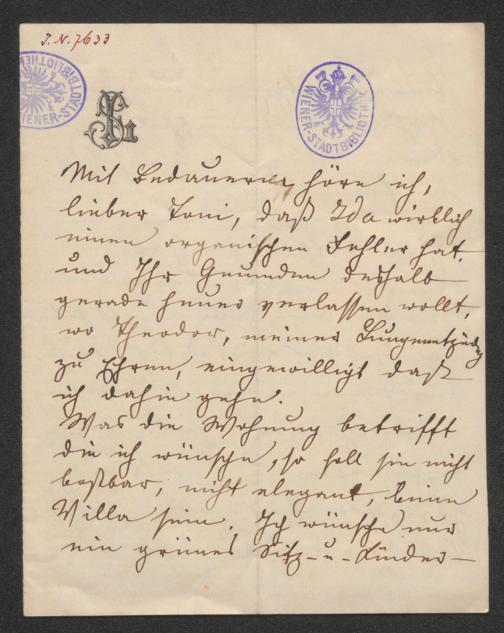 J. N. 7633
WIENER-STADTBIBLIOTHEK
WIENER-STADTBIBLIOTHEK
Mit Bedauern, höre ich,
lieber Toni, daß Ida wirklich
einen organischen Fehler hat,
und Ihr Gmunden deshalb
gerade heuer verlassen wollt,
wo Theodor, meiner Lungenentzündg
zu Ehren, eingewilligt daß
ich dahin gehe.
Was die Wohnung betrifft
die ich wünsche, so soll sie nicht
kostbar, nicht elegant, keine
Villa sein. Ich wünsche nur
ein grünes Sitz- u- Kinder-